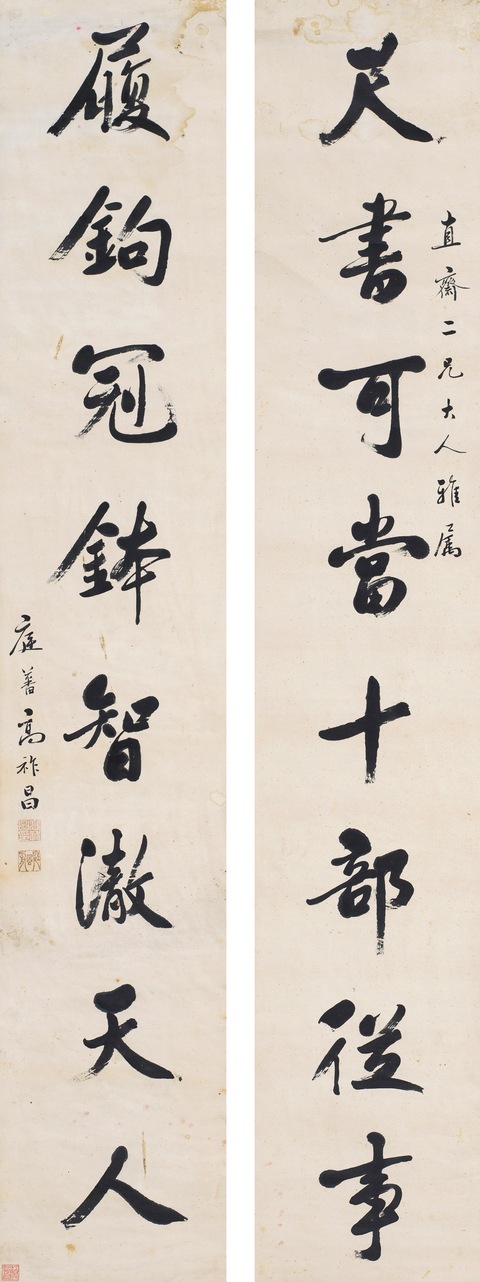 直齋二兄大人雅属
尺書可當十部從事
履鉤冠鉢智澈天人
庭高祚昌